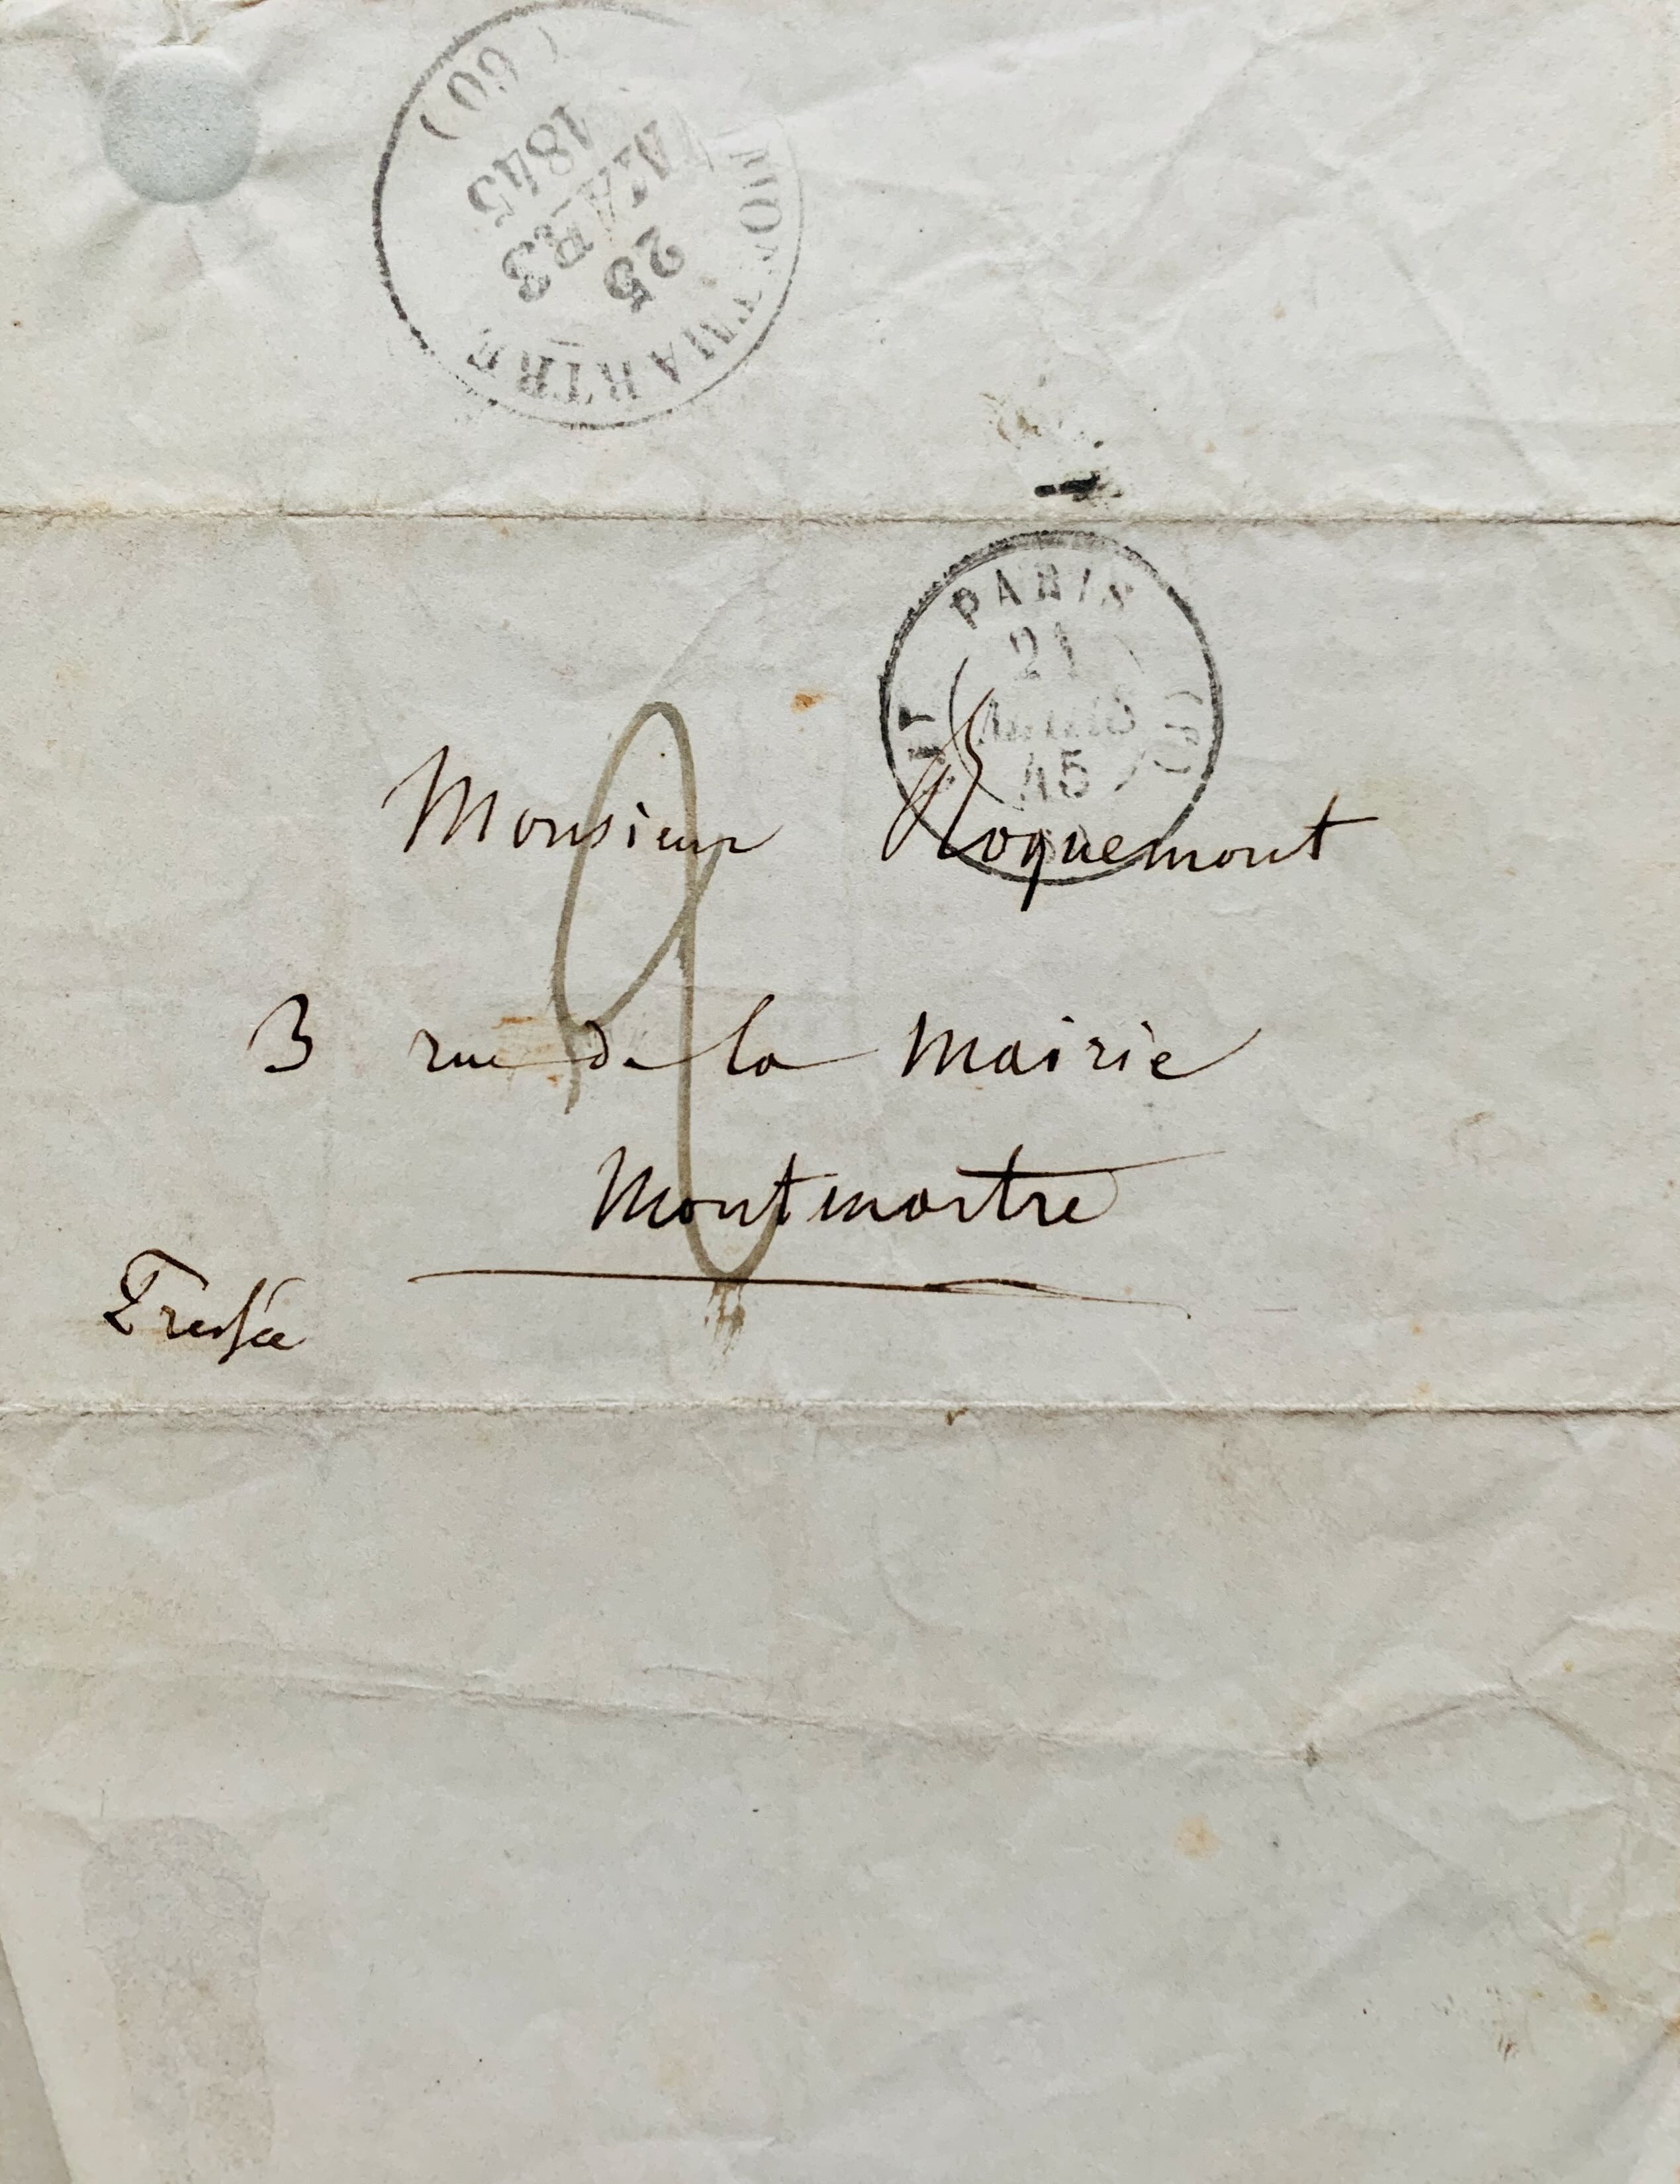 MONTMARTRE
25
MARS
1845
(60)
PARIS
21
MARS
45
(60)
Monsieur Roquemont
3 rue de la Mairie
Montmartre
2